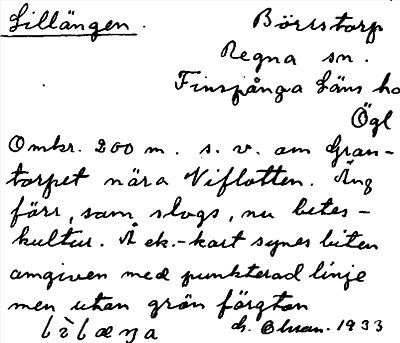 Lillängen. Börrstorp
Regna sn.
Finspånga Läns ho
Ögl
Omkr. 200 m. s. v. om Gran-
torpet nära Viflotten. Äng
förr, som slogs, nu betes-
kultur. Å ek.-kart synes biten
omgiven med punkterad linje
men utan grön färgton
1933